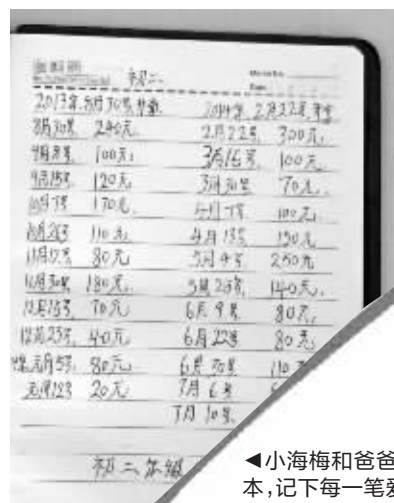 初二
2013年8月30号开始 2014年2月22号开学
8月30号 240元 2月22号 300元
9月8号 100元 3月16号 100元
9月15号 120元 3月30号 70元
10月7号 170元 4月7号 100元
10月20号 110元 4月13号 150元
11月17号 80元 5月4号 250元
11月30号 180元 5月25号 140元
12月15号 70元 6月9号 80元
12月23号 40元 6月22号 80元
元月5号 80元 6月30号 110
元月12号 20元 7月6号
7月10号
初二年级
◀小海梅和爸爸
本,记下每一笔爱